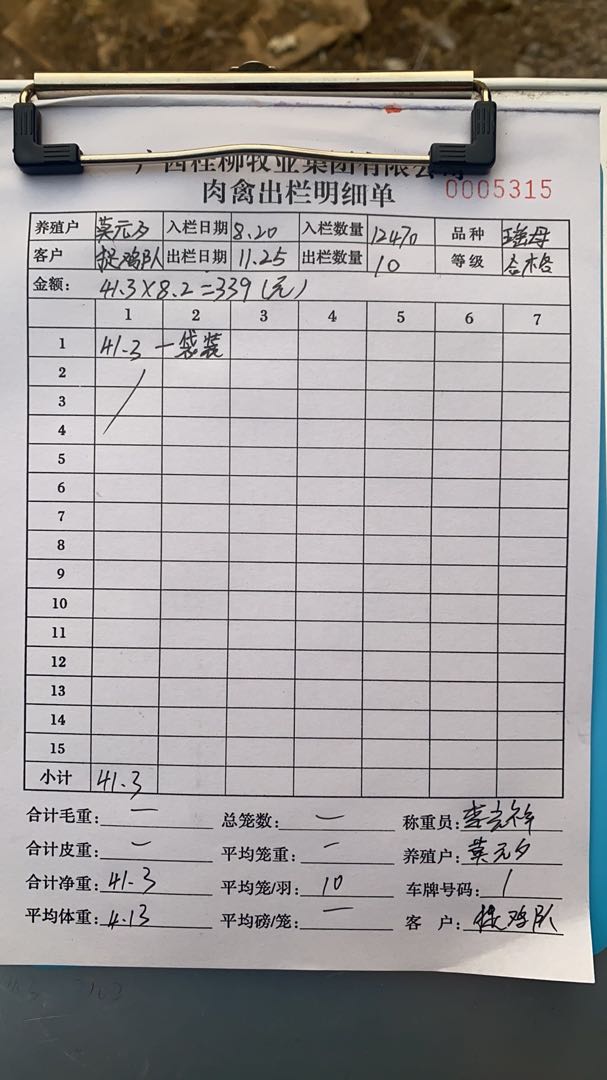 广西桂柳牧业集团有限公司
肉禽出栏明细单 0005315
养殖户 莫元夕 入栏日期 8.20 入栏数量 12470 品种 瑶母
客户 捉鸡队 出栏日期 11.25 出栏数量 10 等级 合格
金额: 41.3×8.2=339(元)
1 2 3 4 5 6 7
1 41.3 一袋装
2
3
4
5
6
7
8
9
10
11
12
13
14
15
小计 41.3
合计毛重: 一 总笼数: 一 称重员:
合计皮重: 一 平均笼重: 一 养殖户: 莫元夕
合计净重: 41.3 平均笼/羽: 10 车牌号码: /
平均体重: 4.13 平均磅/笼: 一 客户: 捉鸡队